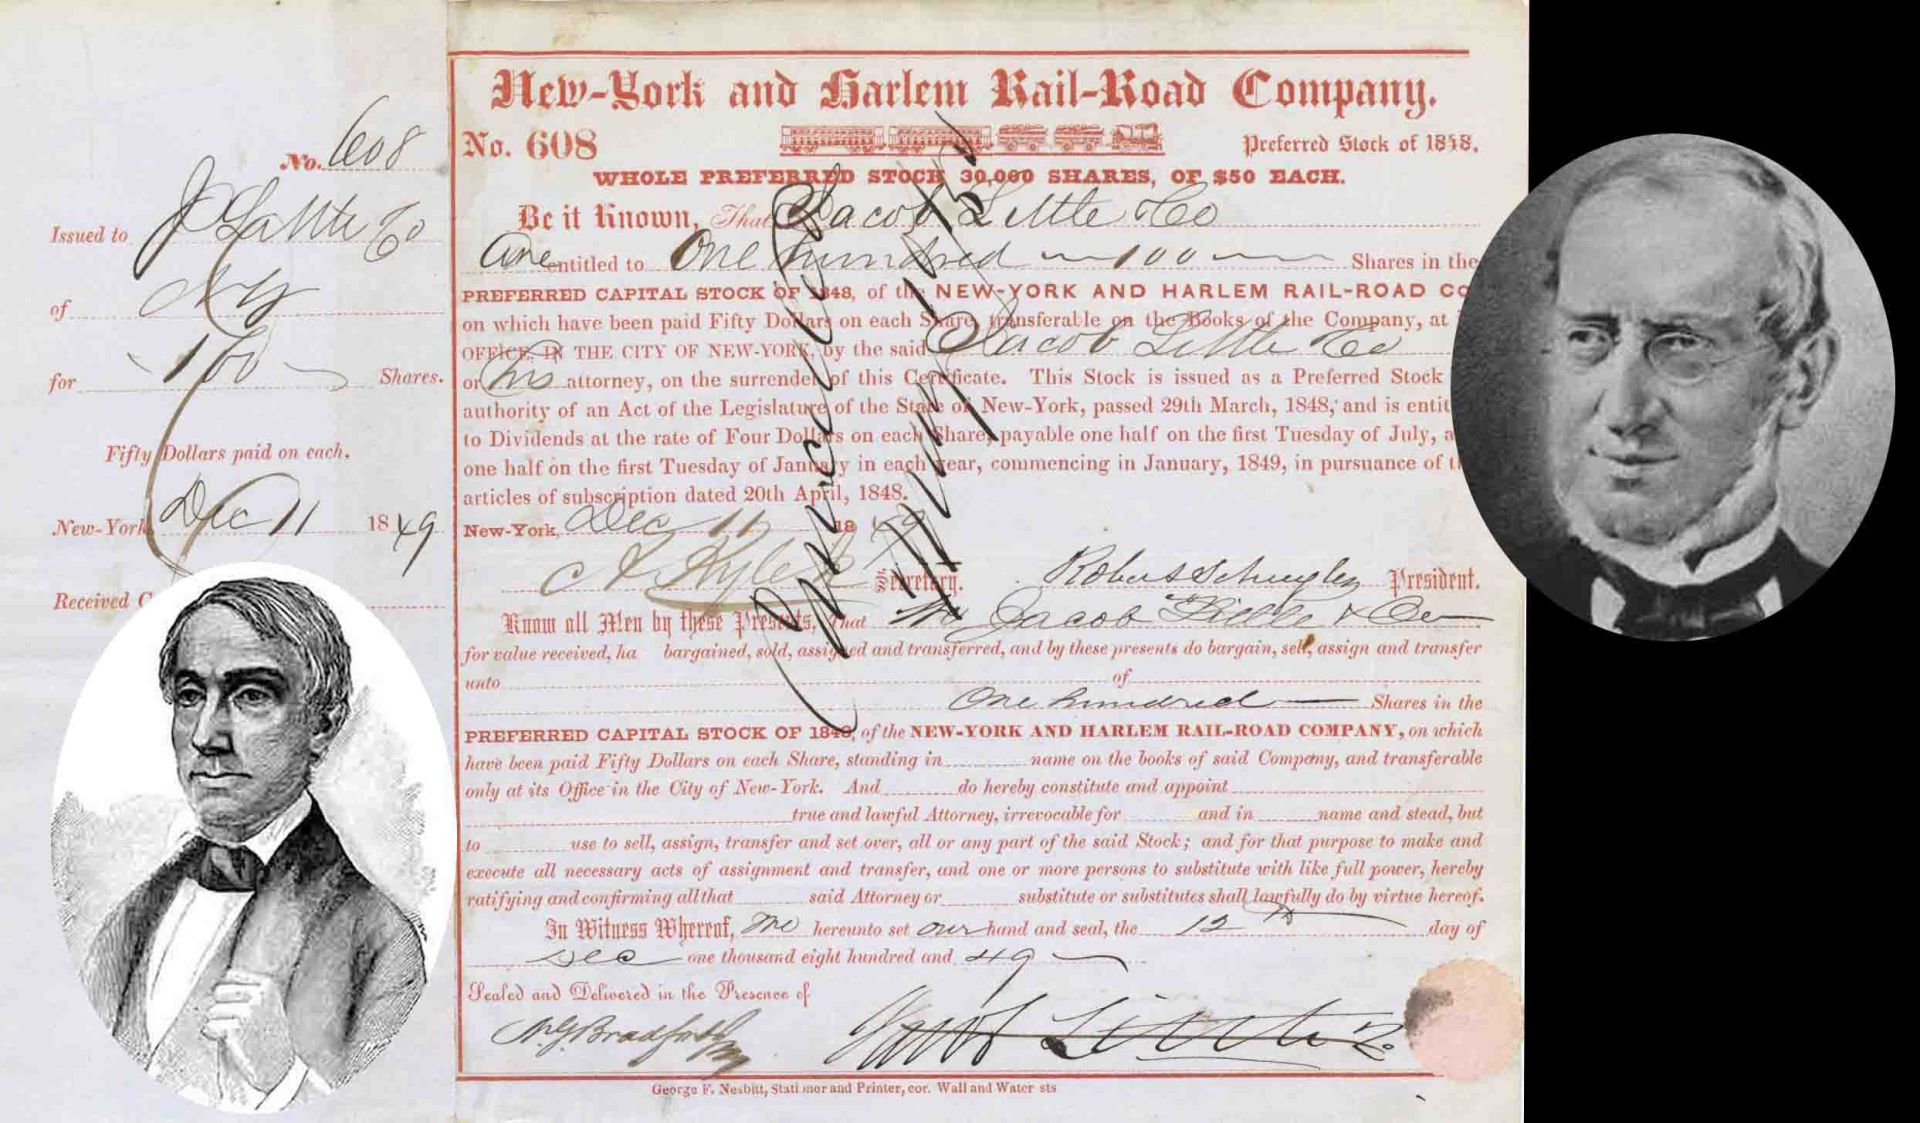 No. 608
Issued to J Little & Co
of NY
for 100 Shares.
Fifty Dollars paid on each.
New-York, Dec 11 1849
Received
New-York and Harlem Rail-Road Company.
No. 608
Preferred Stock of 1848,
WHOLE PREFERRED STOCK 30,000 SHARES, OF $50 EACH.
Be it Known, That Jacob Little & Co
Are entitled to One hundred 100 Shares in the
PREFERRED CAPITAL STOCK OF 1848, of the NEW-YORK AND HARLEM RAIL-ROAD CO
on which have been paid Fifty Dollars on each Share, transferable on the Books of the Company, at
OFFICE, IN THE CITY OF NEW-YORK, by the said Jacob Little & Co
or his attorney, on the surrender of this Certificate. This Stock is issued as a Preferred Stock
authority of an Act of the Legislature of the State of New-York, passed 29th March, 1848, and is entit
to Dividends at the rate of Four Dollars on each Share, payable one half on the first Tuesday of July, a
one half on the first Tuesday of January in each year, commencing in January, 1849, in pursuance of t
articles of subscription dated 20th April, 1848.
New-York, Dec 11 1849
Secretary. Robert Schuyler President.
Know all Men by these Presents, That We Jacob Little & Co
for value received, ha bargained, sold, assigned and transferred, and by these presents do bargain, sell, assign and transfer
unto of
One hundred Shares in the
PREFERRED CAPITAL STOCK OF 1848, of the NEW-YORK AND HARLEM RAIL-ROAD COMPANY, on which
have been paid Fifty Dollars on each Share, standing in name on the books of said Company, and transferable
only at its Office in the City of New-York. And do hereby constitute and appoint
true and lawful Attorney, irrevocable for and in name and stead, but
to use to sell, assign, transfer and set over, all or any part of the said Stock; and for that purpose to make and
execute all necessary acts of assignment and transfer, and one or more persons to substitute with like full power, hereby
ratifying and confirming all that said Attorney or substitute or substitutes shall lawfully do by virtue hereof.
In Witness Whereof, We hereunto set our hand and seal, the 12th day of
Dec one thousand eight hundred and 49
Sealed and Delivered in the Presence of
Jacob Little & Co
George F. Nesbitt, Stationer and Printer, cor. Wall and Water sts
Cancelled